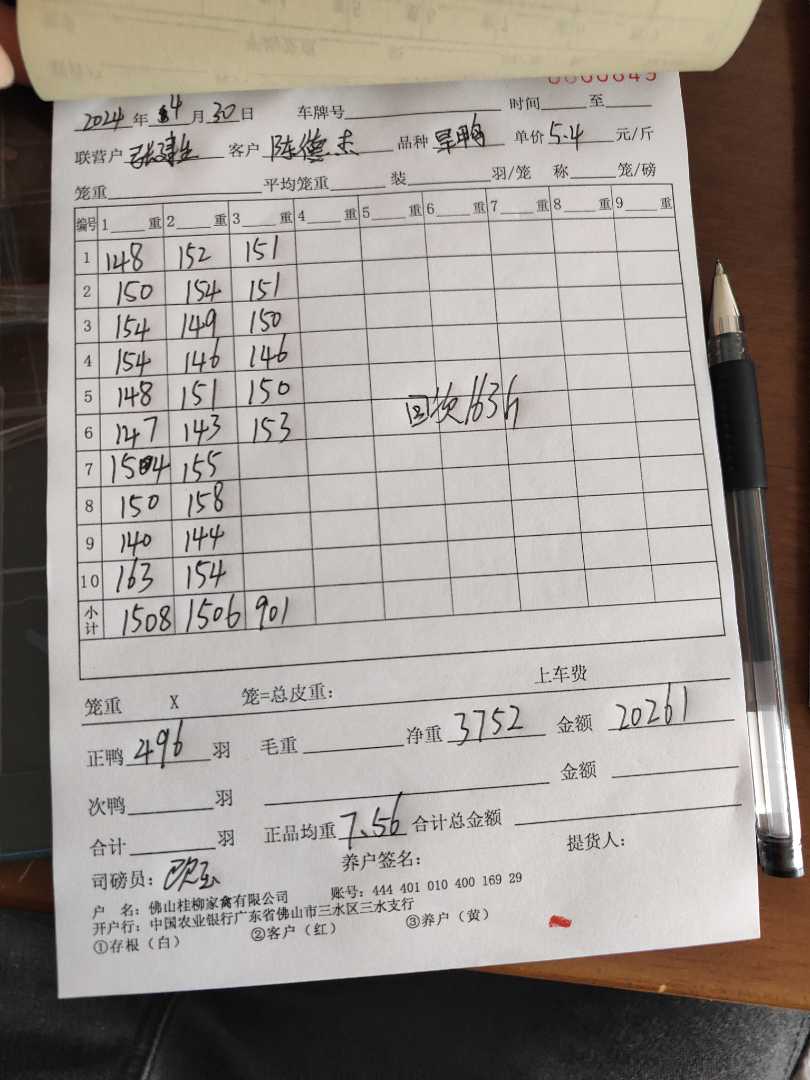 0000849
2024年4月30日 车牌号 时间 至
联营户 张建生 客户 陈德杰 品种 旱鸭 单价5.4元/斤
笼重 平均笼重 装 羽/笼 称 笼/磅
编号 1 重 2 重 3 重 4 重 5 重 6 重 7 重 8 重 9 重
1 148 152 151
2 150 154 151
3 154 149 150
4 154 146 146
5 148 151 150
回次163h
6 147 143 153
7 154 155
8 150 158
9 140 144
10 163 154
小计 1508 1506 901
笼重 X 笼=总皮重: 上车费
正鸭 496 羽 毛重 净重 3752 金额 20261
次鸭 羽 金额
合计 羽 正品均重 7.56 合计总金额
司磅员: 养户签名: 提货人:
户 名: 佛山桂柳家禽有限公司 账号: 444 401 010 400 169 29
开户行: 中国农业银行广东省佛山市三水区三水支行
①存根（白） ②客户（红） ③养户（黄）